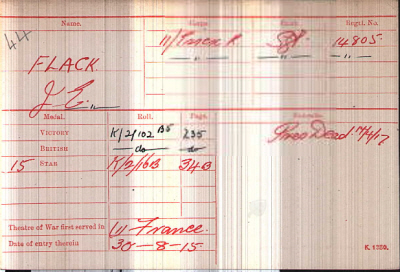 Name. Corps. Rank. Regtl. No.
44
FLACK 11/Essex R. Sjt 14805.
J. E. " " "
Medal. Roll. Page. Remarks.
VICTORY K/2/102 B5 235 Pres Dead 17/4/17
BRITISH do do
15 STAR K/2/16B 34B
Theatre of War first served in (1) France.
Date of entry therein 30-8-15.
K. 1380.